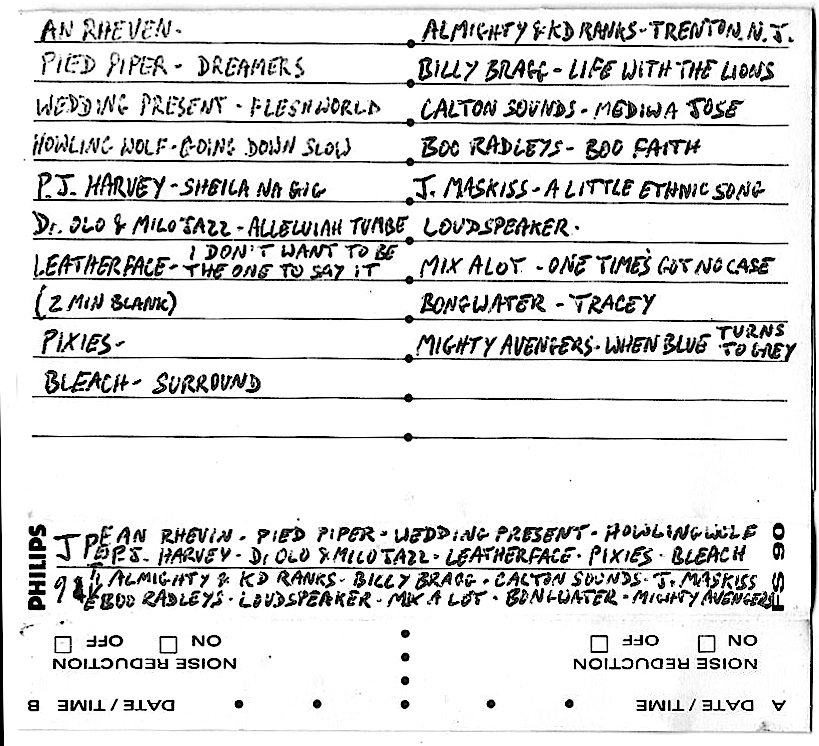 AN RHEVEN.
PIED PIPER - DREAMERS
WEDDING PRESENT - FLESHWORLD
HOWLING WOLF - GOING DOWN SLOW
P.J. HARVEY - SHEILA NA GIG
Dr. OLO & MILO JAZZ - ALLELUIAH TUMBE
LEATHERFACE - I DON'T WANT TO BE
THE ONE TO SAY IT
(2 MIN BLANK)
PIXIES -
BLEACH - SURROUND
ALMIGHTY & KD RANKS - TRENTON, N.J.
BILLY BRAGG - LIFE WITH THE LIONS
CALTON SOUNDS - MEDIWA JOSE
BOO RADLEYS - BOO FAITH
J. MASKISS - A LITTLE ETHNIC SONG
LOUDSPEAKER.
MIX A LOT - ONE TIME'S GOT NO CASE
BONGWATER - TRACEY
MIGHTY AVENGERS - WHEN BLUE TURNS
TO GREY
PHILIPS
J PEEL
91
AN RHEVIN - PIED PIPER - WEDDING PRESENT - HOWLING WOLF
P.J. HARVEY - Dr OLO & MILO JAZZ - LEATHERFACE - PIXIES - BLEACH
ALMIGHTY & KD RANKS - BILLY BRAGG - CALTON SOUNDS - J. MASKISS
BOO RADLEYS - LOUDSPEAKER - MIX A LOT - BONGWATER - MIGHTY AVENGERS
FS 90
A DATE / TIME
NOISE REDUCTION
ON OFF
B DATE / TIME
NOISE REDUCTION
ON OFF